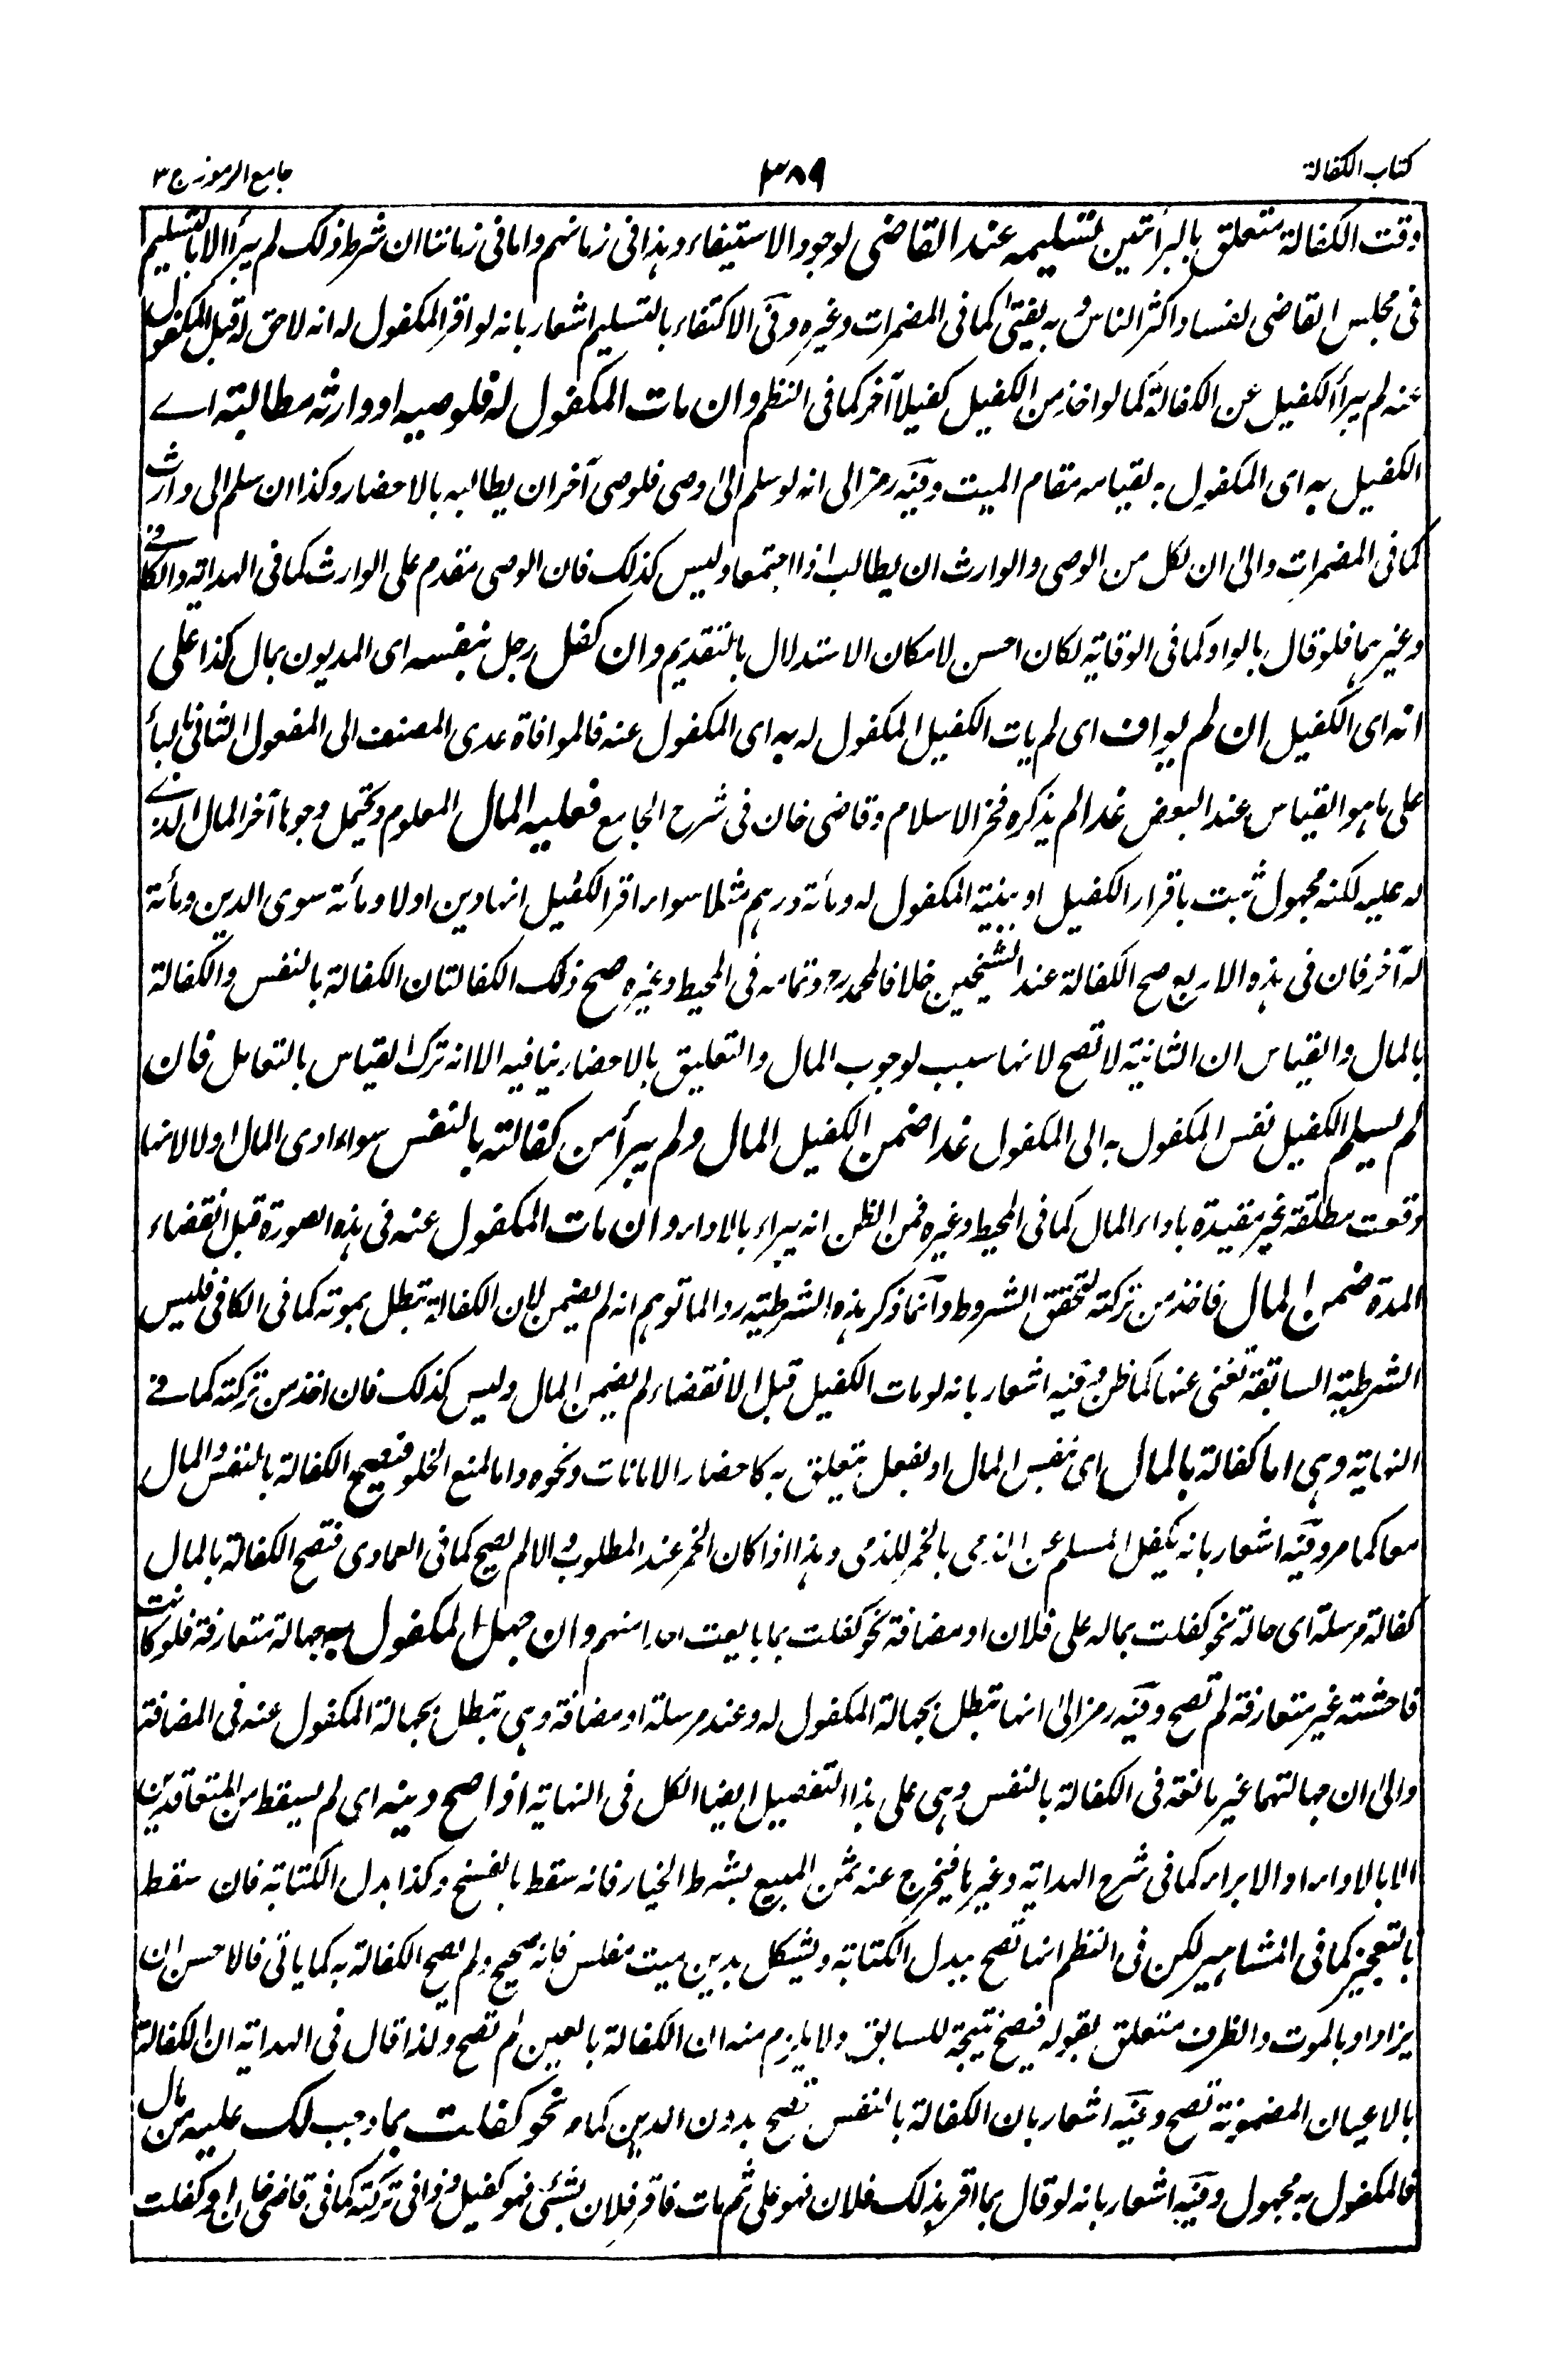 كتاب الكفالة
٣٨٩
جامع الرموز ج ٣
وقت الكفالة متعلق بالبرأتين لتسليمه عند القاضى لوجود الاستيفاء وهذا فى زمانهم واما فى زماننا ان شرط ذلك لم يبرأ الا بالتسليم
فى مجلس القاضى لفساد اكثر الناس وبه يفتى كما فى المضمرات وغيره وفى الاكتفاء بالتسليم اشعار بانه لو اقر المكفول له انه لا حق له قبل المكفول
عنه لم يبرأ الكفيل عن الكفالة كما لو اخذ من الكفيل كفيلا آخر كما فى النظم وان مات المكفول له فلوصيه او وارثه مطالبته اے
الكفيل به اى المكفول به لقيامه مقام الميت وفيه رمز الى انه لو سلم الى وصى فلوصى آخر ان يطالبه بالاحضار وكذا ان سلم الى وارث
كما فى المضمرات والى ان لكل من الوصى والوارث ان يطالب اذا اجتمعا وليس كذلك فان الوصى مقدم على الوارث كما فى الهداية والكافے
وغيرهما فلو قال بالواو كما فى الوقاية لكان احسن لامكان الاستدلال بالتقديم وان كفل رجل بنفسه اى المديون بمال كذا على
انه اى الكفيل ان لم يواف اى لم يات الكفيل المكفول له به اى المكفول عنه فالموافاة عدى المصنف الى المفعول الثانى بالباء
على ما هو القياس عند البعض غدا لم يذكره فخر الاسلام وقاضى خان فى شرح الجامع فعليه المال المعلوم ويحتمل وجوها آخر المال الذے
له عليه لكنه مجهول ثبت باقرار الكفيل او ببينة المكفول له ومأة درهم مثلا سواء اقر الكفيل انها دين اولا ومأئة سوى الدين ومأئة
له آخر فان فى هذه الاربع صح الكفالة عند الشيخين خلافا لمحمد رح وتمامه فى المحيط وغيره صح ذلك الكفالتان الكفالة بالنفس والكفالة
بالمال والقياس ان الثانية لا تصح لانها سبب لوجوب المال والتعليق بالاحضار ينافيه الا انه ترك القياس بالتعامل فان
لم يسلم الكفيل نفس المكفول به الى المكفول غدا ضمن الكفيل المال ولم يبرأ من كفالته بالنفس سواء ادى المال اولا لانها
وقعت مطلقة غير مقيدة باداء المال كما فى المحيط وغيره فمن الظن انه يبراء بالاداء وان مات المكفول عنه فى هذه الصورة قبل انقضاء
المدة ضمن المال فاخذ من تركته لتحقق الشروط وانما ذكر هذه الشرطية ردا لما توهم انه لم يضمن لان الكفالة تبطل بموته كما فى الكافى فليس
الشرطية السابقة تغنى عنها كما ظن وفيه اشعار بانه لو مات الكفيل قبل الانقضاء لم يضمن المال وليس كذلك فان اخذ من تركته كما فے
النهاية وهى اما كفالة بالمال اى بنفس المال او بفعل يتعلق به كاحضار الامانات ونحوه واما لمنع الخلو فتصح الكفالة بالنفس والمال
معا كما مر وفيه اشعار بانه يكفل المسلم عن الذمى بالخمر للذمى وهذا اذا كان الخمر عند المطلوب والا لم يصح كما فى العمادى فتصح الكفالة بالمال
كفالة مرسلة اى حالة نحو كفلت بماله على فلان او مضافة نحو كفلت بما بايعت احدا منهم وان جهل المكفول به جهالة متعارفة فلو كانت
فاحشة غير متعارفة لم تصح وفيه رمز الى انها تبطل بجهالة المكفول له وعند مرسلة او مضافة وهى تبطل بجهالة المكفول عنه فى المضافة
والى ان جهالتهما غير مانعة فى الكفالة بالنفس وهى على هذا التفصيل ايضا الكل فى النهاية اذا صح دينه اى لم يسقط من المتعاقدين
الا بالاداء او الابراء كما فى شرح الهداية وغيرها فيخرج عنه ثمن المبيع بشرط الخيار فانه سقط بالفسخ وكذا بدل الكتابة فان سقط
بالتعجيز كما فى المشاهير لكن فى النظم انها تصح ببدل الكتابة ويشكل بدين ميت مفلس فانه صحيح ولم تصح الكفالة به كما ياتى فالاحسن ان
يزاد او بالموت والظرف متعلق بقوله فيصح نتيجة للسابق ولا يلزم منه ان الكفالة بالعين لم تصح ولذا قال فى الهداية ان الكفالة
بالاعيان المضمونة تصح وفيه اشعار بان الكفالة بالنفس تصح بدون الدين كما مر نحو كفلت بما وجب لك عليه من مال
فالمكفول به مجهول وفيه اشعار بانه لو قال بما اقر بذلك فلان فهو على ثم مات فاقر فلان بشئ فهو كفيل فى تركته كما فى قاضى خان او كفلت